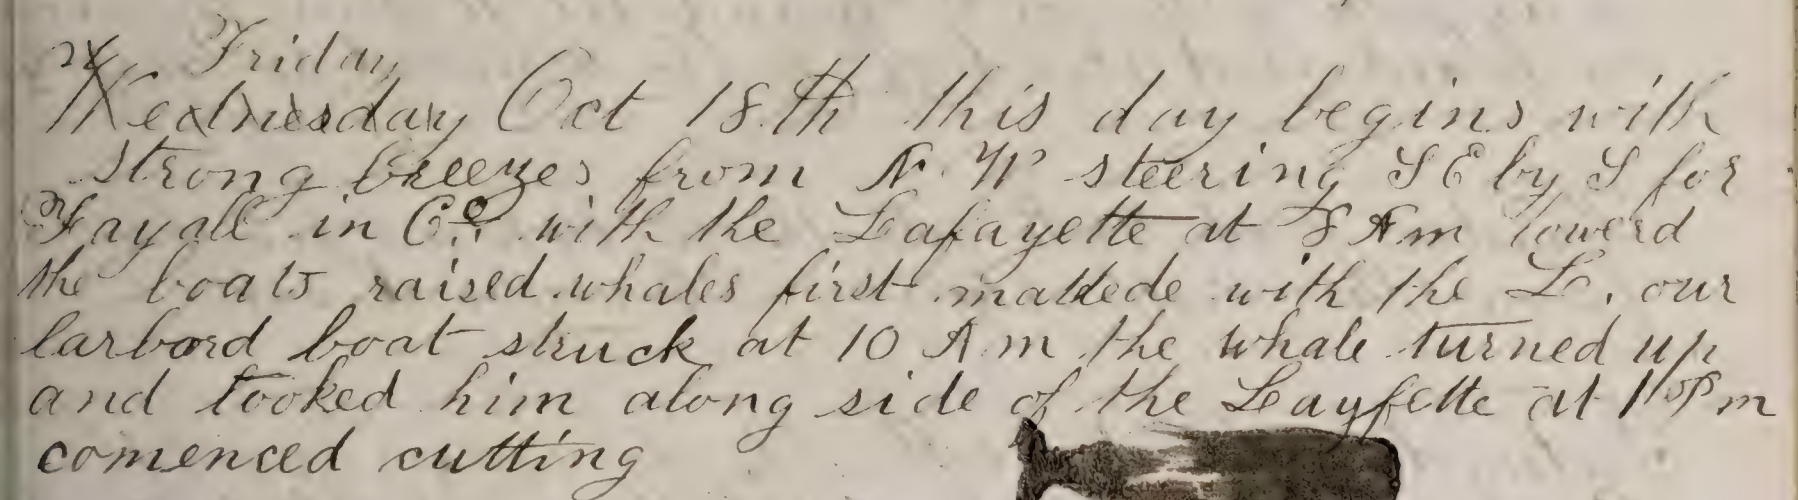 Friday
Wednesday Oct 18th this day begins with
strong breezes from N. W steering S E by S for
Fayall in Co. with the Lafayette at 8 A m lowerd
the boats raised whales first mattede with the L, our
larbord boat struck at 10 A m the whale turned up
and tooked him along side of the Layfette at 1 P m
comenced cutting